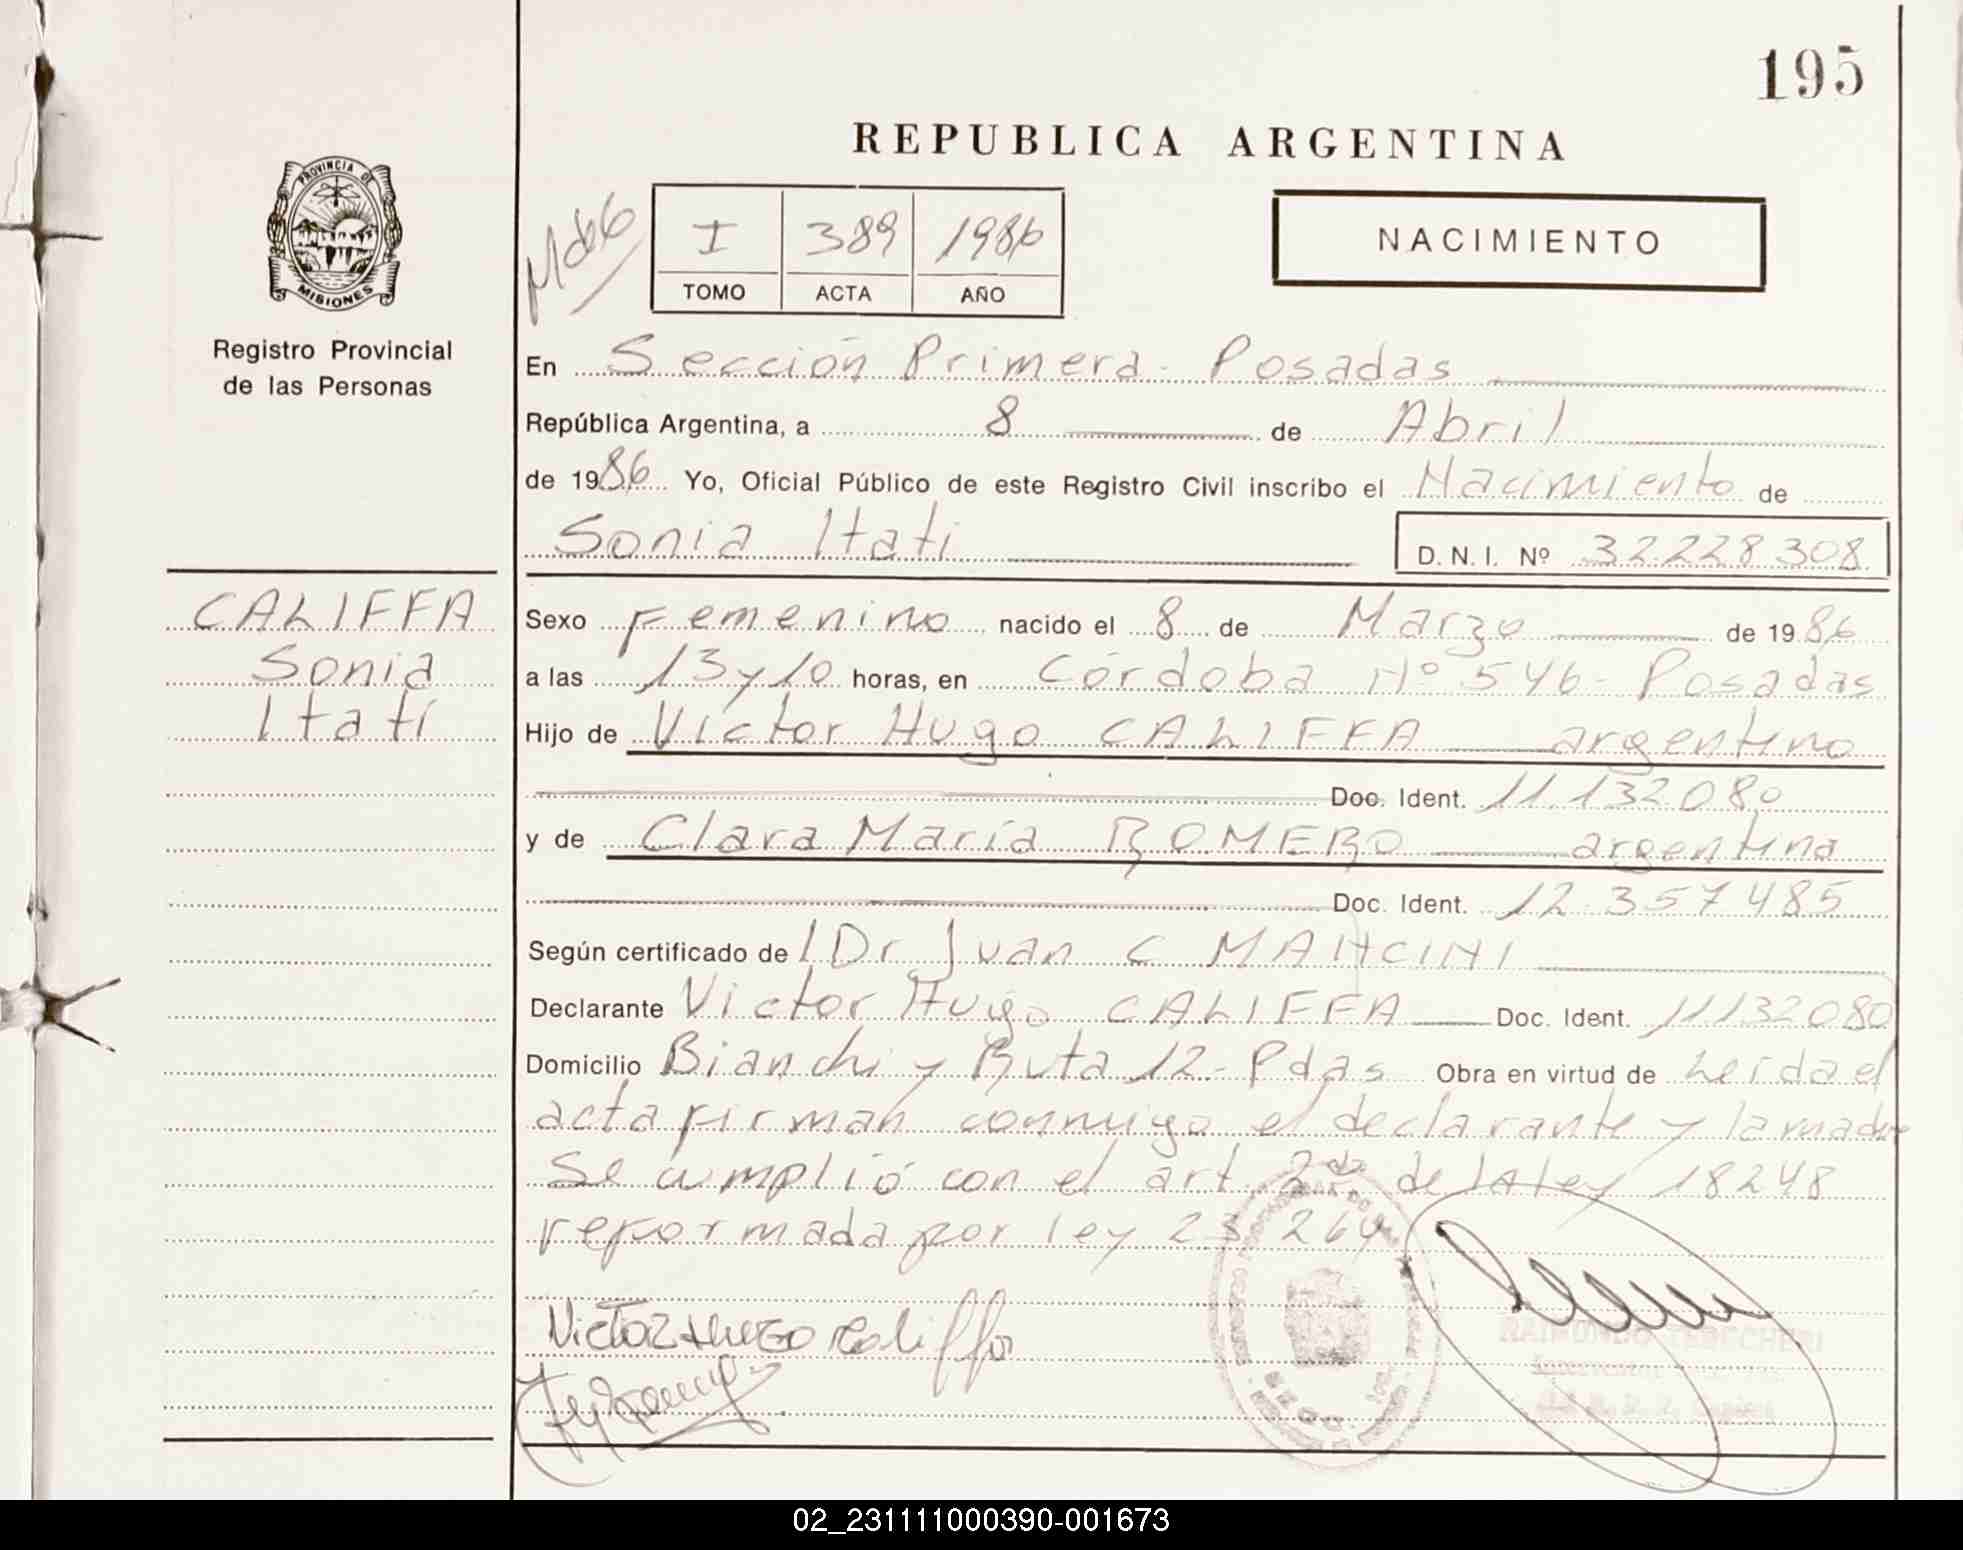 195
REPUBLICA ARGENTINA
PROVINCIA DE
MISIONES
Registro Provincial
de las Personas
I 389 1986
TOMO ACTA AÑO
NACIMIENTO
En Sección Primera - Posadas
República Argentina, a 8 de Abril
de 1986 Yo, Oficial Público de este Registro Civil inscribo el Nacimiento de
Sonia Itati D. N. I. Nº 32.228.308
CALIFFA
Sonia
Itatí
Sexo Femenino nacido el 8 de Marzo de 1986
a las 13 y 10 horas, en Córdoba Nº 546 - Posadas
Hijo de Víctor Hugo CALIFFA argentino
Doc. Ident. 11.132080
y de Clara María ROMERO argentina
Doc. Ident. 12.357485
Según certificado de l Dr Juan C MANCINI
Declarante Victor Hugo CALIFFA Doc. Ident. 11132080
Domicilio Bianchi y Ruta 12 - Pdas Obra en virtud de Leída el
acta firman conmigo el declarante y la madre
Se cumplió con el art 2do de la ley 18248
reformada por ley 23 264
Victor Hugo Califfa
02_231111000390-001673